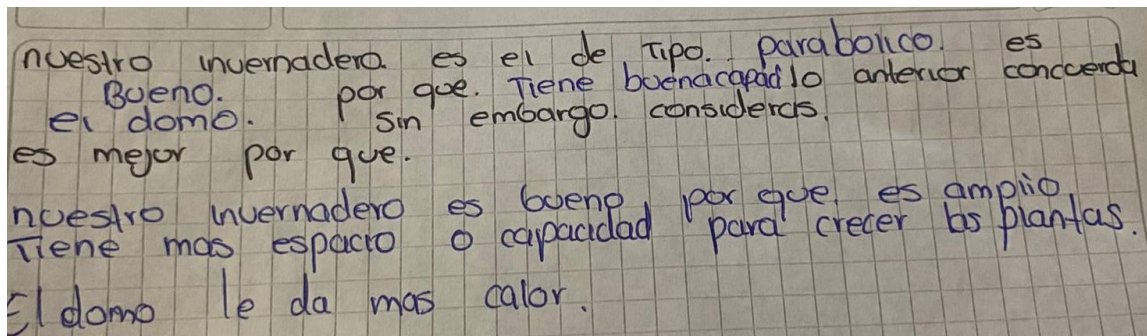 nuestro invernadero. es el de Tipo. parabolico. es
Bueno. por que. Tiene buenacapad lo anterior concuerda
el domo. sin embargo. consideras.
es mejor por que.
nuestro invernadero es bueno por que es amplio,
Tiene mas espacio o capacidad para crecer las plantas.
El domo le da mas calor.